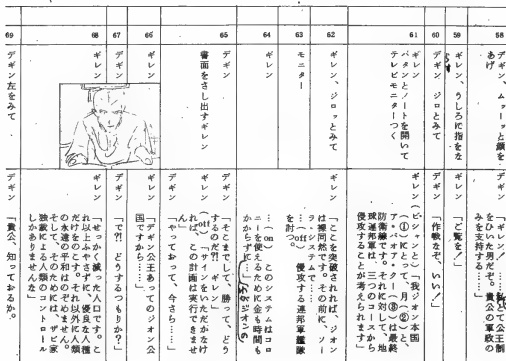 58
デギン、ムゥーッと顔を
あげ
デギン
「ギレン、私とて公王制
をひいた男だぞ。貴公の軍政の
みを支持する……」
59
ギレン、うしろに指をな
ギレン
「ご覧を！」
60
デギン　ジロとみて
デギン
「作戦なぞ、いい！」
61
ギレン
バタンとノートを開いて
テレビモニターつく
ギレン
（ビシャンと）「我ジオン本国
（①）にとって、月（②）と
ア・バオア・クー（③）は最終
防衛線です。それに対して、地
球連邦軍は、三つのコースから
侵攻することが考えられます」
62
ギレン、ジロッとみて
ギレン
「ここを突破されれば、ジオン
は裸同然です。その前に、ソー
ラ・システムで……
63
モニター
…（off　侵攻する連邦軍艦隊
を討つ。
64
ギレン
…（on）　このシステムはコロ
ニーを使えるために金も時間も
かからずに…」
65
デギン
書面をさし出すギレン
デギン
「そこまでして、勝って、どう
するのだ？！
ギレン
（off）「サインをいただかなけ
れば、この計画は実行できませ
ん」
デギン
「やっておって、今さら……」
66
ギレン
ギレン
「デギン公王あってのジオン公
国ですから……」
67
デギン
デギン
「で？！　どうするつもりか？」
68
ギレン
ギレン
「せっかく減った人口です。こ
れ以上ふやさずに、優良な人種
だけをのこす。それ以外に人類
の永遠の平和はのぞめません。
そして、そのためには、ザビ家
独裁による人類のコントロール
しかありませんな」
69
デギン左をみて
デギン
「貴公、知っておるか。